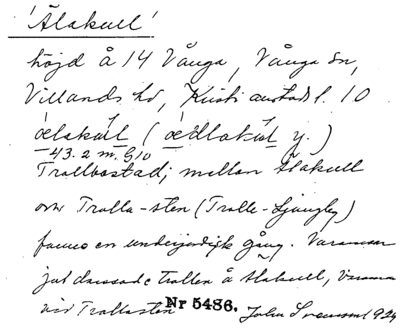 'Ålakull'
höjd å 14 Vånga, Vånga sn,
Villands hd, Kristianstads l. 10
ọelakul ( ọedlakul y.)
43. 2 m. G 10
Trollbostad; mellan Ålakull
och Trolla-sten (Trolle-Ljungby)
fanns en underjordisk gång. Varannan
jul dansade trollen å Ålakull, varannan
vid Trollasten
Nr 5486.
John Svensson 1924